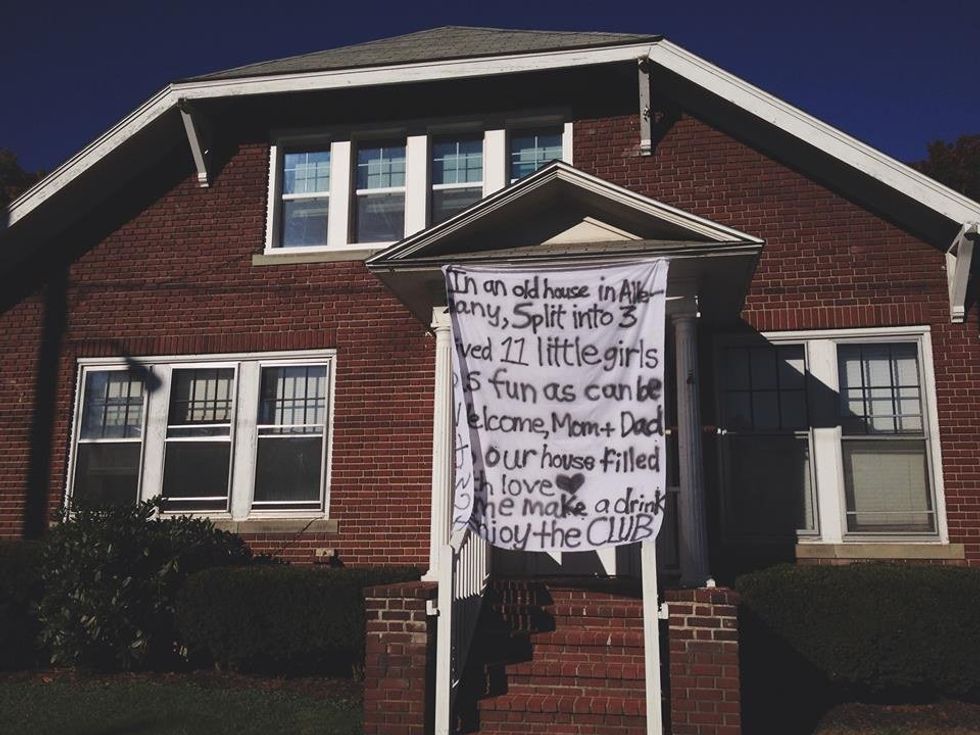 In an old house in Alle-
any, Split into 3
ved 11 little girls
s fun as can be
elcome, Mom + Dad
our house filled
h love ♥
me make a drink
njoy the CLUB